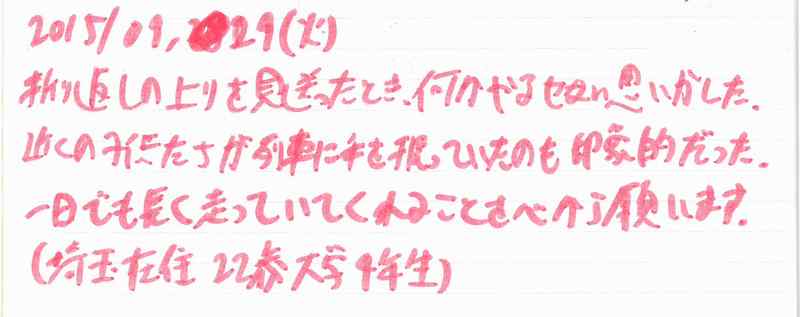 2015/09,29(火)
折り返しの上りを見送ったとき、何かやるせない思いがした。
近くの子供たちが列車に手を振っていたのも印象的だった。
一日でも長く走っていてくれることを 願います。
(埼玉在住 22歳 大学4年生)